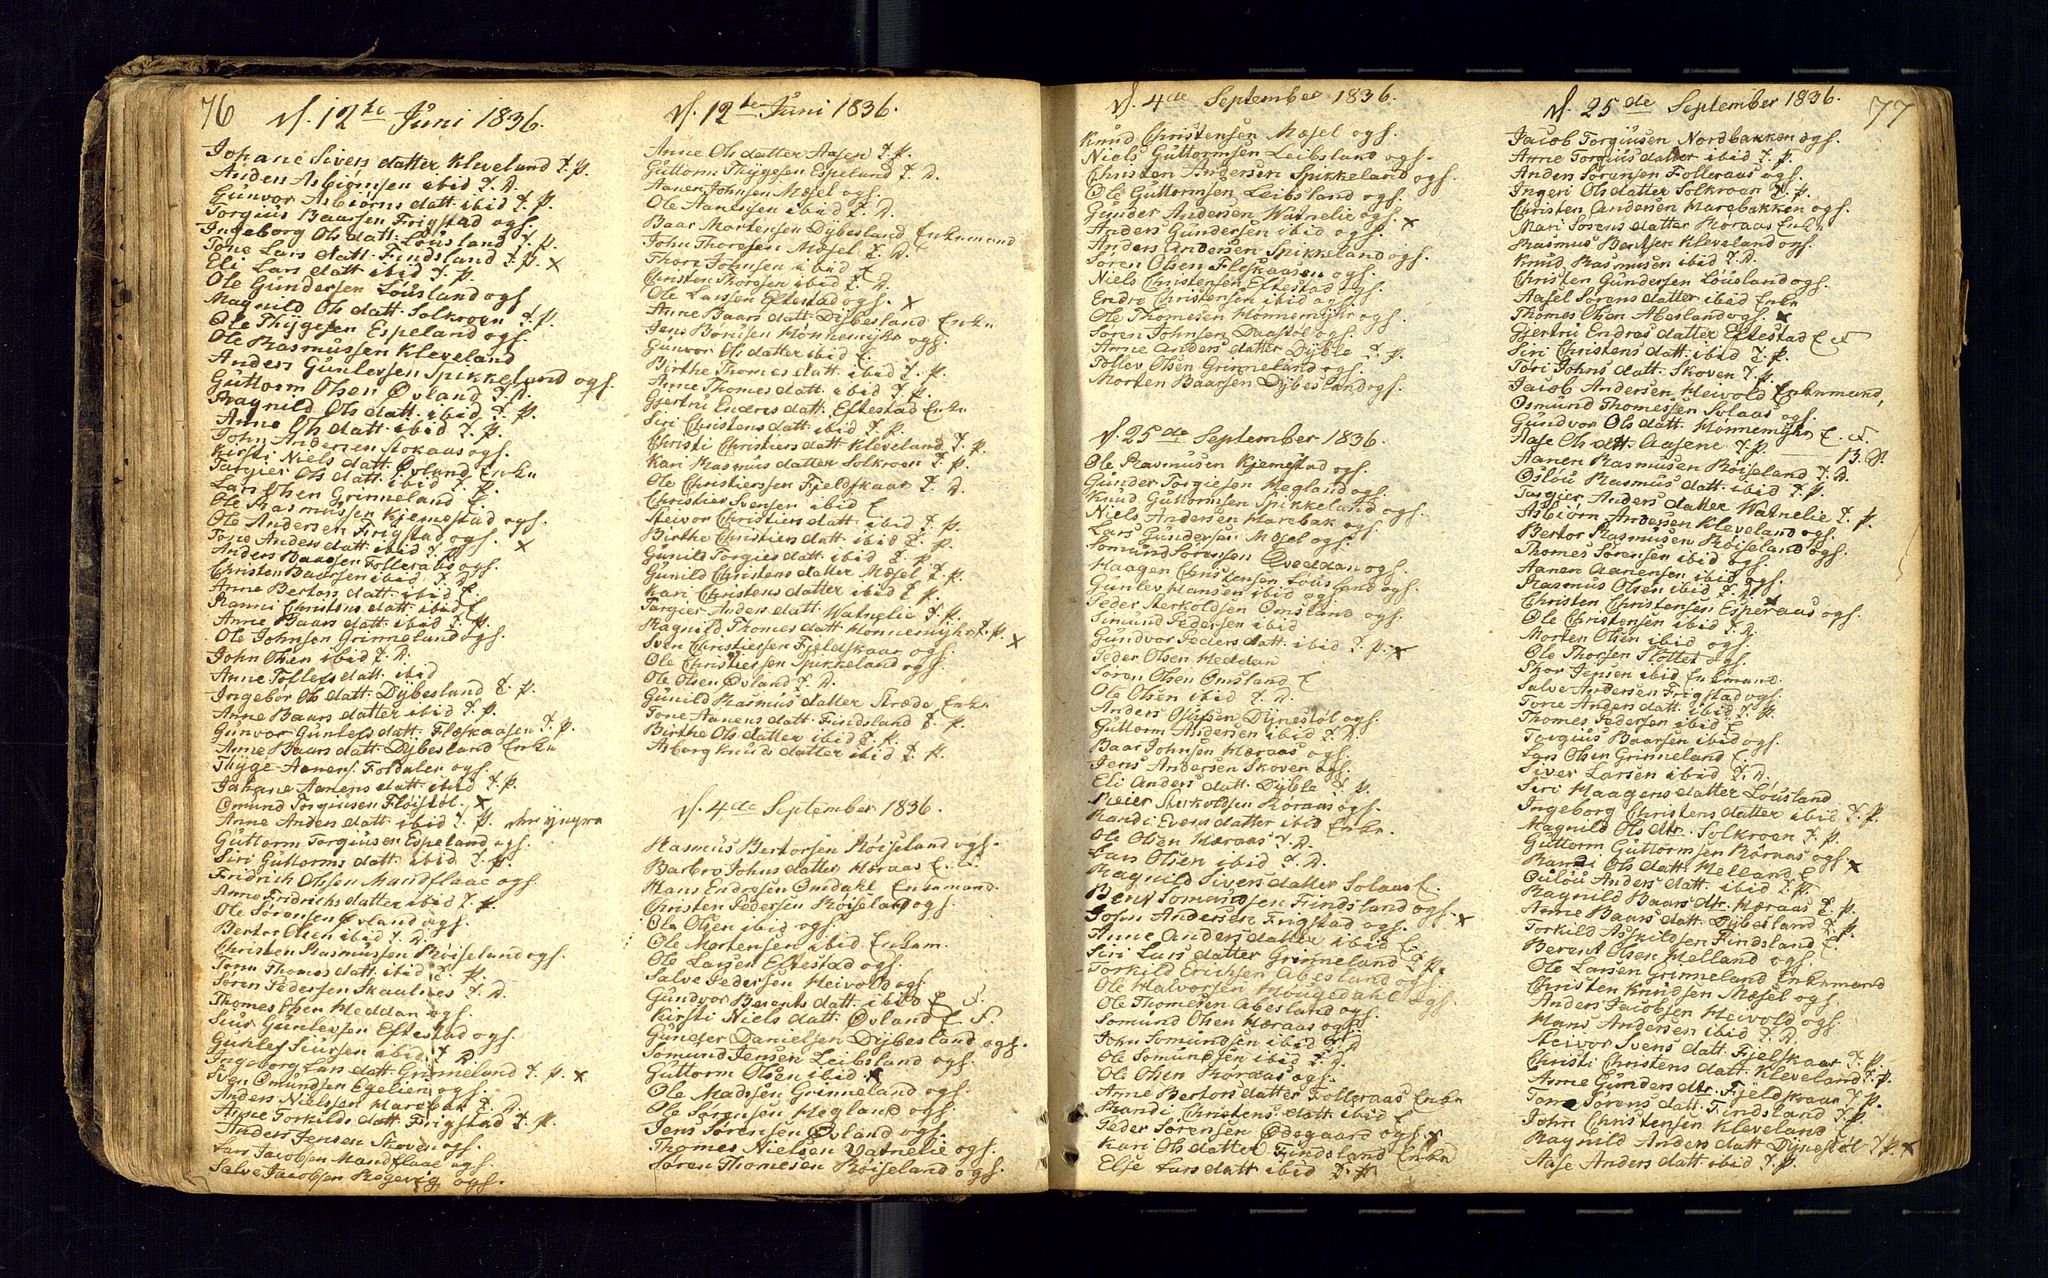 76
d. 12te Juni 1836.
Johane Sivers datter Kleveland T. P.
Anden Asbiørnsen ibid T. D.
Gunvor Asbiørns datt ibid T. P.
Torgius Baarsen Frigstad ogf.
Ingeborg Ols datt. Løusland T. P.
Tone Lars datt. Findsland T. P. x
Eli Lars datt ibid T. P.
Ole Gundersen Løusland ogf
Magnild Ols datt Solkroen T. P.
Ole Thygesen Espeland ogf.
Ole Rasmussen Kleveland
Anders Gunlevsen Spikkeland ogf.
Guttorm Olsen Øvland T. D.
Ragnild Ols datt ibid T. P.
Anne Ols datt ibid T. P.
John Andersen Stokaas ogf.
Kirsti Niels datt. Øvland Enkn
Targier Ols datt ibid T. P.
Lars Olsen Grinneland E.
Ole Rasmussen Kjemestad ogf.
Ole Andersen Frigstad ogf. x
Tone Anders datt ibid T. P.
Anders Baarsen Folleraas ogf.
Christen Baarsen ibid T. D.
Anne Bertors datt ibid E.
Ranni Christens datt ibid E
Anne Baars datt ibid T. P.
Ole Johnsen Grinneland ogf.
John Olsen ibid T. D.
Anne Tollefs datt ibid
Ingebor Ols datt. Dÿbesland T. P.
Anne Baars datter ibid T. P.
Gunvor Gunlefs datt. Flæskaasen T. P.
Anne Baars datt Dÿbesland Enkn
Thÿge Aanens. Foldalen ogf.
Johane Aanens datt ibid T. P.
Omund Torgiusen Fløistøl x
Anne Anders datt ibid T. P.
Guttorm Torgiusen Espeland ogf.
Siri Guttorms datt ibid T. P.
Fridrich Olssen Mandflaae ogf.
Anne Fridrichs datter ibid T. P.
Ole Sørensen Øvland ogf.
Bertor Olsen ibid T. D.
Christen Rasmussen Røiseland ogf.
Tone Thomes datt ibid T. P.
Søren Pedersen Skaulnes T. D.
Thomes Olsen Heddan ogf.
Siur Gunlevsen Eftestad ogf.
Gunlef Siursen ibid T. D.
Ingeborg Lars datt Grinneland T. P. x
Sven Omundsen Egelien ogf.
Anders Nielssen Marebak T. D.
Anne Torkilds datt Frigstad T. P.
Anders Jensen Skove ogf.
Lars Jacobsen Mandflaae ogf
Salve Jacobsen Rogevig ogf.
d. 12te Juni 1836.
Anne Ols datter Aasen T. P.
Guttorm Thygesen Espeland T. D.
Aanen Johnsen Mæsel ogf.
Ole Aanensen ibid T. D.
Baar Mortensen Dÿbesland Enkemand
John Thoresen Mæsel T. D.
Thore Johnsen ibid E
Christen Thoresen ibid T. D.
Ole Larssen Eftestad ogf. x
Anne Baars datt Dÿbesland Enkn
Jens Børufsen Honnemÿhr ogf.
Gunvor Ols datter ibid E.
Birthe Thomes datt. ibid T. P.
Anne Thomes datt ibid T. P.
Gjertru Endres datt. Eftestad Enkn
Siri Christens datt ibid T. P.
Christi Christiers datt Kleveland T. P.
Kari Rasmus datter Solkroen T. P.
Ole Christierssen Fjeldskaar T. D.
Christier Svensen ibid E
Steivor Christiers datt ibid T. P.
Birthe Christiers datt ibid T. P.
Gunild Torgies datt ibid T. P.
Gunild Christens datter Mæsel T. P.
Kari Christens datter ibid T. P.
Targier Anders datt. Watnelie T. P.
Magnild Thomes datt Honnemÿhr T. P. x
Sven Christiersen Fjeldskaar ogf.
Ole Christiersen Spikkeland ogf.
Ole Olsen Øvland T. D.
Gunild Rasmus datter Træde Enkn.
Tone Aanens datt. Findsland T. P.
Birthe Ols datter ibid T. P.
Asborg Knuds datter ibid T. P.
d. 4de September 1836.
Rasmus Bertorsen Røiseland ogf.
Barbro Johns datter Høraas E. F.
Hans Endresen Omdahl Enkemand.
Christen Pedersen Røiseland ogf.
Ole Olsen ibid ogf.
Ole Mortensen ibid Enkem.
Ole Larsen Eftestad ogf.
Salve Pedersen Heivold ogf.
Gundvor Berents datt. ibid E F.
Kirsti Niels datt. Øvland E F.
Gunder Danielsen Dÿbesland ogf.
Somund Jensen Leibsland ogf.
Guttorm Olsen ibid x
Ole Madssen Grinneland ogf.
Ole Sørensen Hegland ogf.
Jens Sørensen Øvland ogf.
Thomes Nielsen Vatnelie ogf.
Søren Thomesen Røiseland ogf.
d. 4de September 1836.
Knud Christensen Mæsel ogf.
Niels Guttormsen Leibsland ogf.
Christen Andersen Spikkeland ogf.
Ole Guttormsen Leibsland ogf.
Gunder Andersen Watnelie ogf. x
Anders Gundersen ibid ogf.
Anders Andersen Spikkeland ogf.
Søren Olsen Fleskaasen ogf.
Niels Christensen Eftestad ogf.
Endre Christensen ibid ogf.
Ole Thomesen Honnemÿhr ogf.
Søren Johnsen Daastøl ogf.
Anne Anders datter Dÿble T. P.
Tollev Olsen Grinneland ogf.
Morten Baarsen Dÿbesland ogf.
d. 25de September 1836.
Ole Rasmusen Kjemestad ogf.
Gunder Torgiesen Hegland ogf.
Knud Guttormsen Spikkeland ogf.
Niels Andersen Marebak ogf.
Lars Gundersen Møsel ogf.
Somund Sørensen Sveddan ogf.
Haagen Christensen Løusland ogf.
Gunlev Hansen ibid ogf.
Peder Sterkoldsen Omsland ogf.
Simund Pedersen ibid
Gundvor Peders datt. ibid T. P. x
Peder Olsen Heddan
Søren Olsen Omsland E
Ole Olsen ibid T. D.
Anders Olufsen Dÿnestøl ogf.
Guttorm Andersen ibid T. D.
Baar Johnsen Høraas ogf.
Jens Andersen Skoven ogf.
Eli Anders datt. Dÿble T. P.
Reier Sterkoldsen Røraas ogf.
Randi Evens datter ibid Enkn.
Ole Olsen Høraas T. D.
Lars Olsen ibid T. D.
Ragnild Sivers datter Solaas E.
Bent Somundsen Findsland ogf.
John Andersen Frigstad ogf. x
Anne Anders datter ibid E.
Siri Lars datter Grinneland T. P.
Torkild Erichsen Abesland ogf.
Ole Halvorsen Hougedahl ogf.
Ole Thomesen Abesland ogf.
Somund Olsen Høraas ogf.
John Somundsen ibid T. D
Ole Somundsen ibid T. D
Ole Olsen Røraas ogf.
Anne Bertors datter Folleraas Enkn
Randi Christens datt ibid E
Peder Sørensen Ødegaard ogf. x
Kari Ols datter Findsland Enkn
Else Lars datt ibid T. P.
d. 25de September 1836.
77
Jacob Torgiusen Nordbakken ogf.
Anne Torgius datter ibid T. P.
Anden Sørensen Folleraas ogf.
Ingeri Ols datter Solkroen T. P.
Christen Andersen Marebakken ogf.
Mari Sørens datter Røraas Enkn
Rasmus Bentsen Kleveland ogf.
Knud Rasmusen ibid T. D.
Christen Gundersen Løusland ogf.
Aasel Sørens datter ibid Enkn
Thomes Olsen Abesland ogf. x
Gjertru Endres datter Eftestad E. F
Siri Christens datt. ibid T. P.
Siri Johns datt. Skoven T. P.
Jacob Andersen Heivold Enkemand,
Osmund Thomessen Solaas ogf.
Gundvor Ols datt Honnemÿhr E. F.
Aase Ols datt. Aasene T. P. 13. P.
Aanen Rasmusen Røiseland T. D.
Osløu Rasmus datt. ibid T. P.
Targier Anders datter Watnelie T. P.
Asbiørn Andersen Kleveland ogf.
Bertor Rasmusen Røiseland ogf.
Thomes Sørensen ibid ogf.
Aanen Aanensen ibid ogf.
Rasmus Olsen ibid T. D.
Christen Christensen Esperaas ogf.
Ole Christensen ibid T. D.
Morten Olsen ibid ogf
Ole Thorsen Slottet ogf.
Skor Jensen ibid Enkmand.
Salve Andersen Frigstad ogf.
Tone Anders datt. ibid T. P
Thomes Pedersen ibid E
Torgius Baarsen ibid ogf.
Lars Olsen Grinneland E.
Siver Larsen ibid T. D.
Siri Haagens datter Løusland
Ingeborg Christens datter ibid T. P.
Magnild Ols dtr. Solkroen T. P.
Guttorm Guttormsen Røraas ogf.
Randi Ols datt. Helland E x
Ouløu Anders datt. ibid T. P.
Ragnild Baars dtr. Høraas T. P.
Anne Baars datt. Dÿbesland T. P.
Torkild Aspildsen Findsland E
Berent Olsen Helland ogf.
Ole Larsen Grinneland Enkemand
Christen Knudsen Mæsel ogf.
Anders Jacobsen Heivold ogf.
Hans Andersen ibid T. D.
Steivor Svens datt. Fjelskaar T. P.
Christi Christens datt. Kleveland T. P.
Anne Gunders dtr. Fjeldskaar T. P.
Tone Sørens datt. Findsland T. P.
John Christensen Kleveland E
Ragnild Anders datt Dÿnestøl T. P. x
Aase Anders datt ibid T. P.